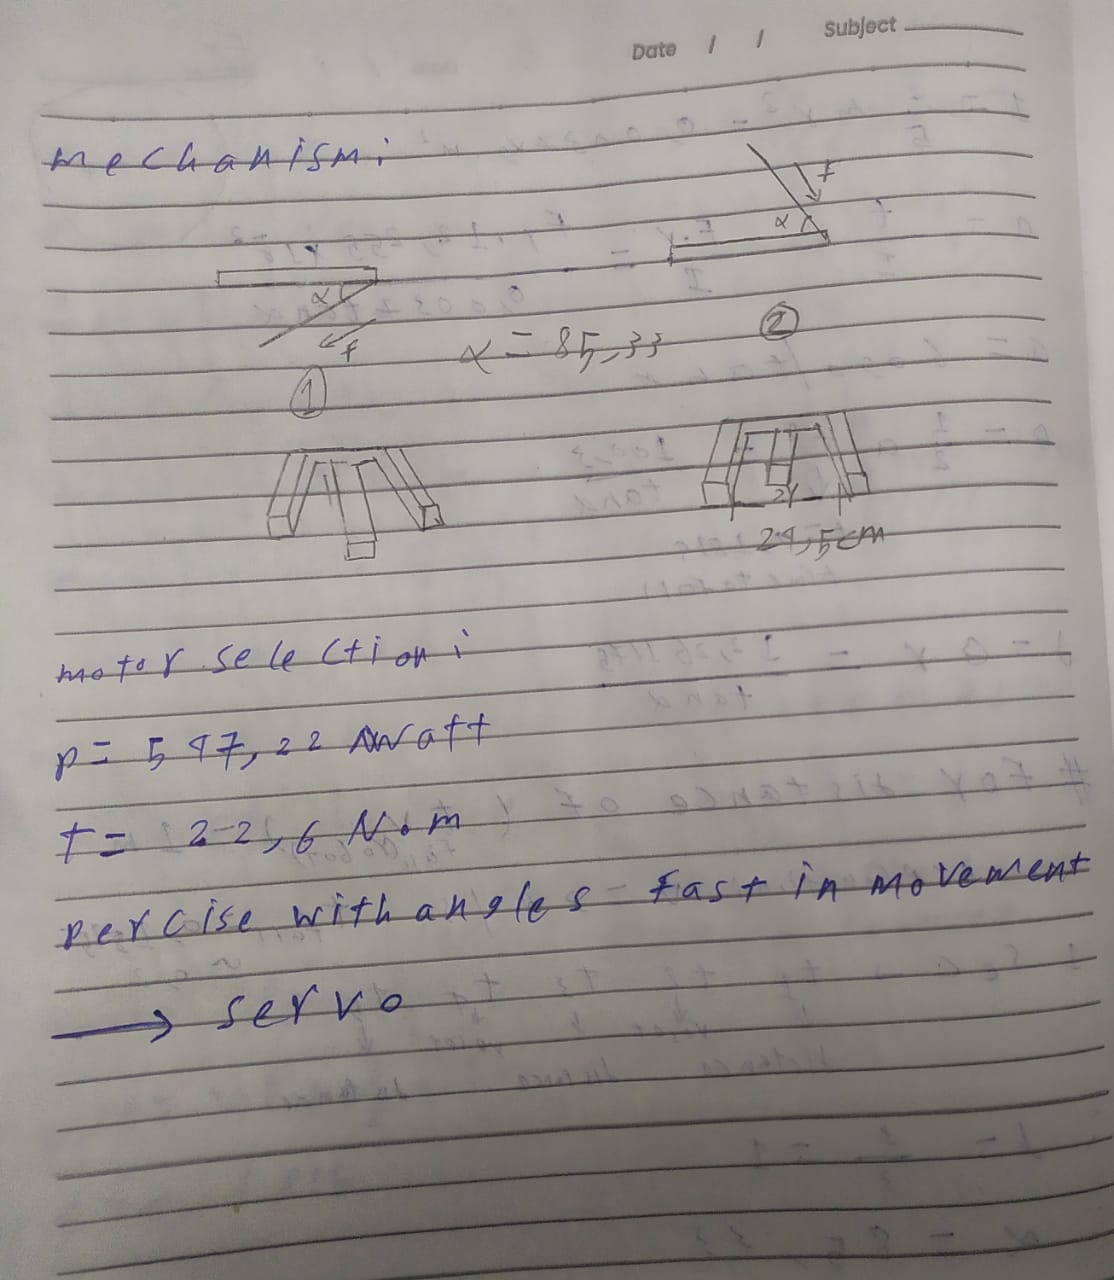 Date / / Subject
mechanism:
f
α
α
f
α = 85,33
①
②
24,5cm
motor selection:
p = 597,22 watt
T = 22,6 N.m
percise with angles - fast in movement
→ servo